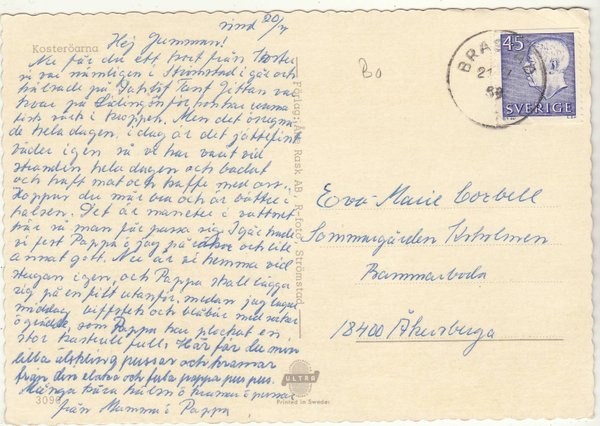 Kosteröarna
Hej Gumman!
Nu får du ett kort från Koster
vi var nämligen i Strömstad igår och
hälsade på Tant Gittan var
kvar på Lidingö för hon har
värk i kroppen. Men det ösregna
de hela dagen, i dag är det jättefint
väder igen så vi har varit vid
stranden hela dagen och badat
och haft mat och kaffe med oss.
Hoppas du mår bra och är bättre i
halsen. Det är maneter i vattnet
här så man får passa sig. Igår hade
vi fest Pappa o jag på och lite
annat gott. Nu är vi hemma vid
stugan igen, och Pappa skall lägga
sig på en filt utanför, medan jag lagar
middag biffstek och blåbär med socker
o grädde, som Pappa har plockat en
stor kastrull full. Här får du min
lilla älskling pussar och kramar
från den elaka och fula pappa puss puss.
Många kära hälsn o kramar o pussar
från Mamma o Pappa
3098
Förlag: Åke Rask AB, R-foto, Strömstad
ULTRA
Printed in Sweden
Bo
BRAS
21
69
45
SVERIGE
Eva-Marie Corbell
Sommargården Kvholmen
Bammarboda
18400 Åkersberga